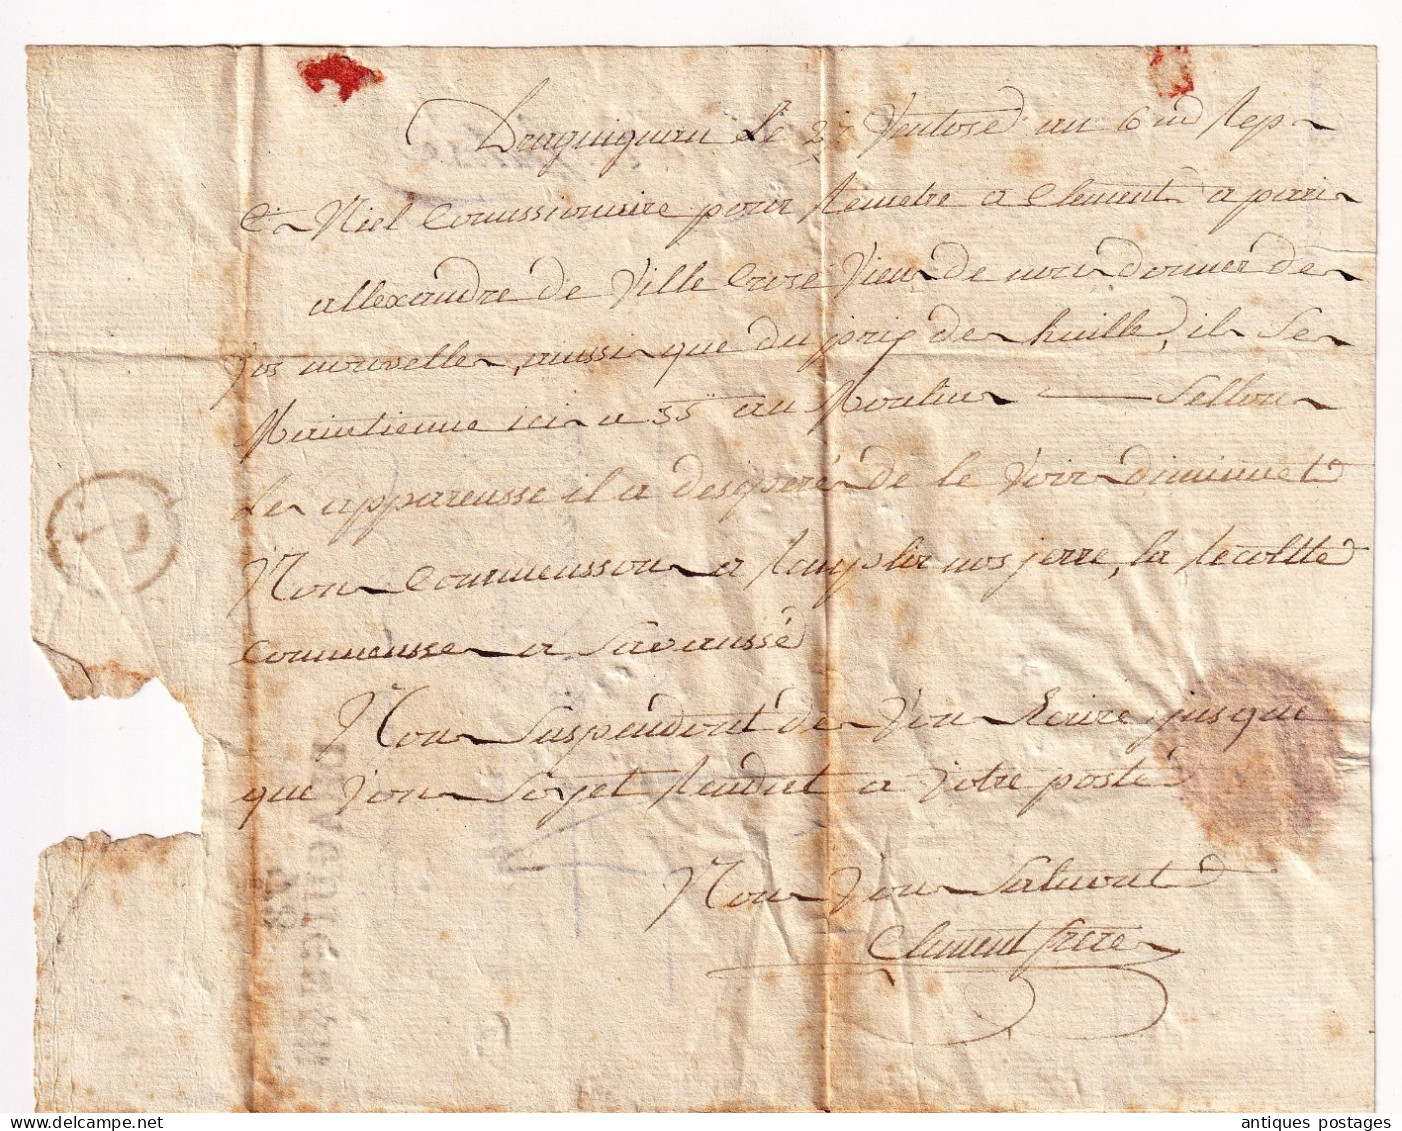 Draguignan Le 27 Ventose an 6 eme Rep
Cn Niel Comissionnaire pour Remetre a Clement a pari
allexandre de Ville Crose Vien de nou donner de
Vos nouvelle, aussi que du prix de huille, il Se
Maintienne ici a 55 au Moulin — Sellon
les appareusse il a desperé de le Voir diminuet
Nou Commensson a Ramplir nos jerre, la Recoltte
Commensse a Savanssé
Nou Suspendont de Vou Ecrire jusque
que Vou Soyet Randut a Votre poste
Nou Vou Saluont
Clement frere
78
DRAGUIGNAN
antiques postages